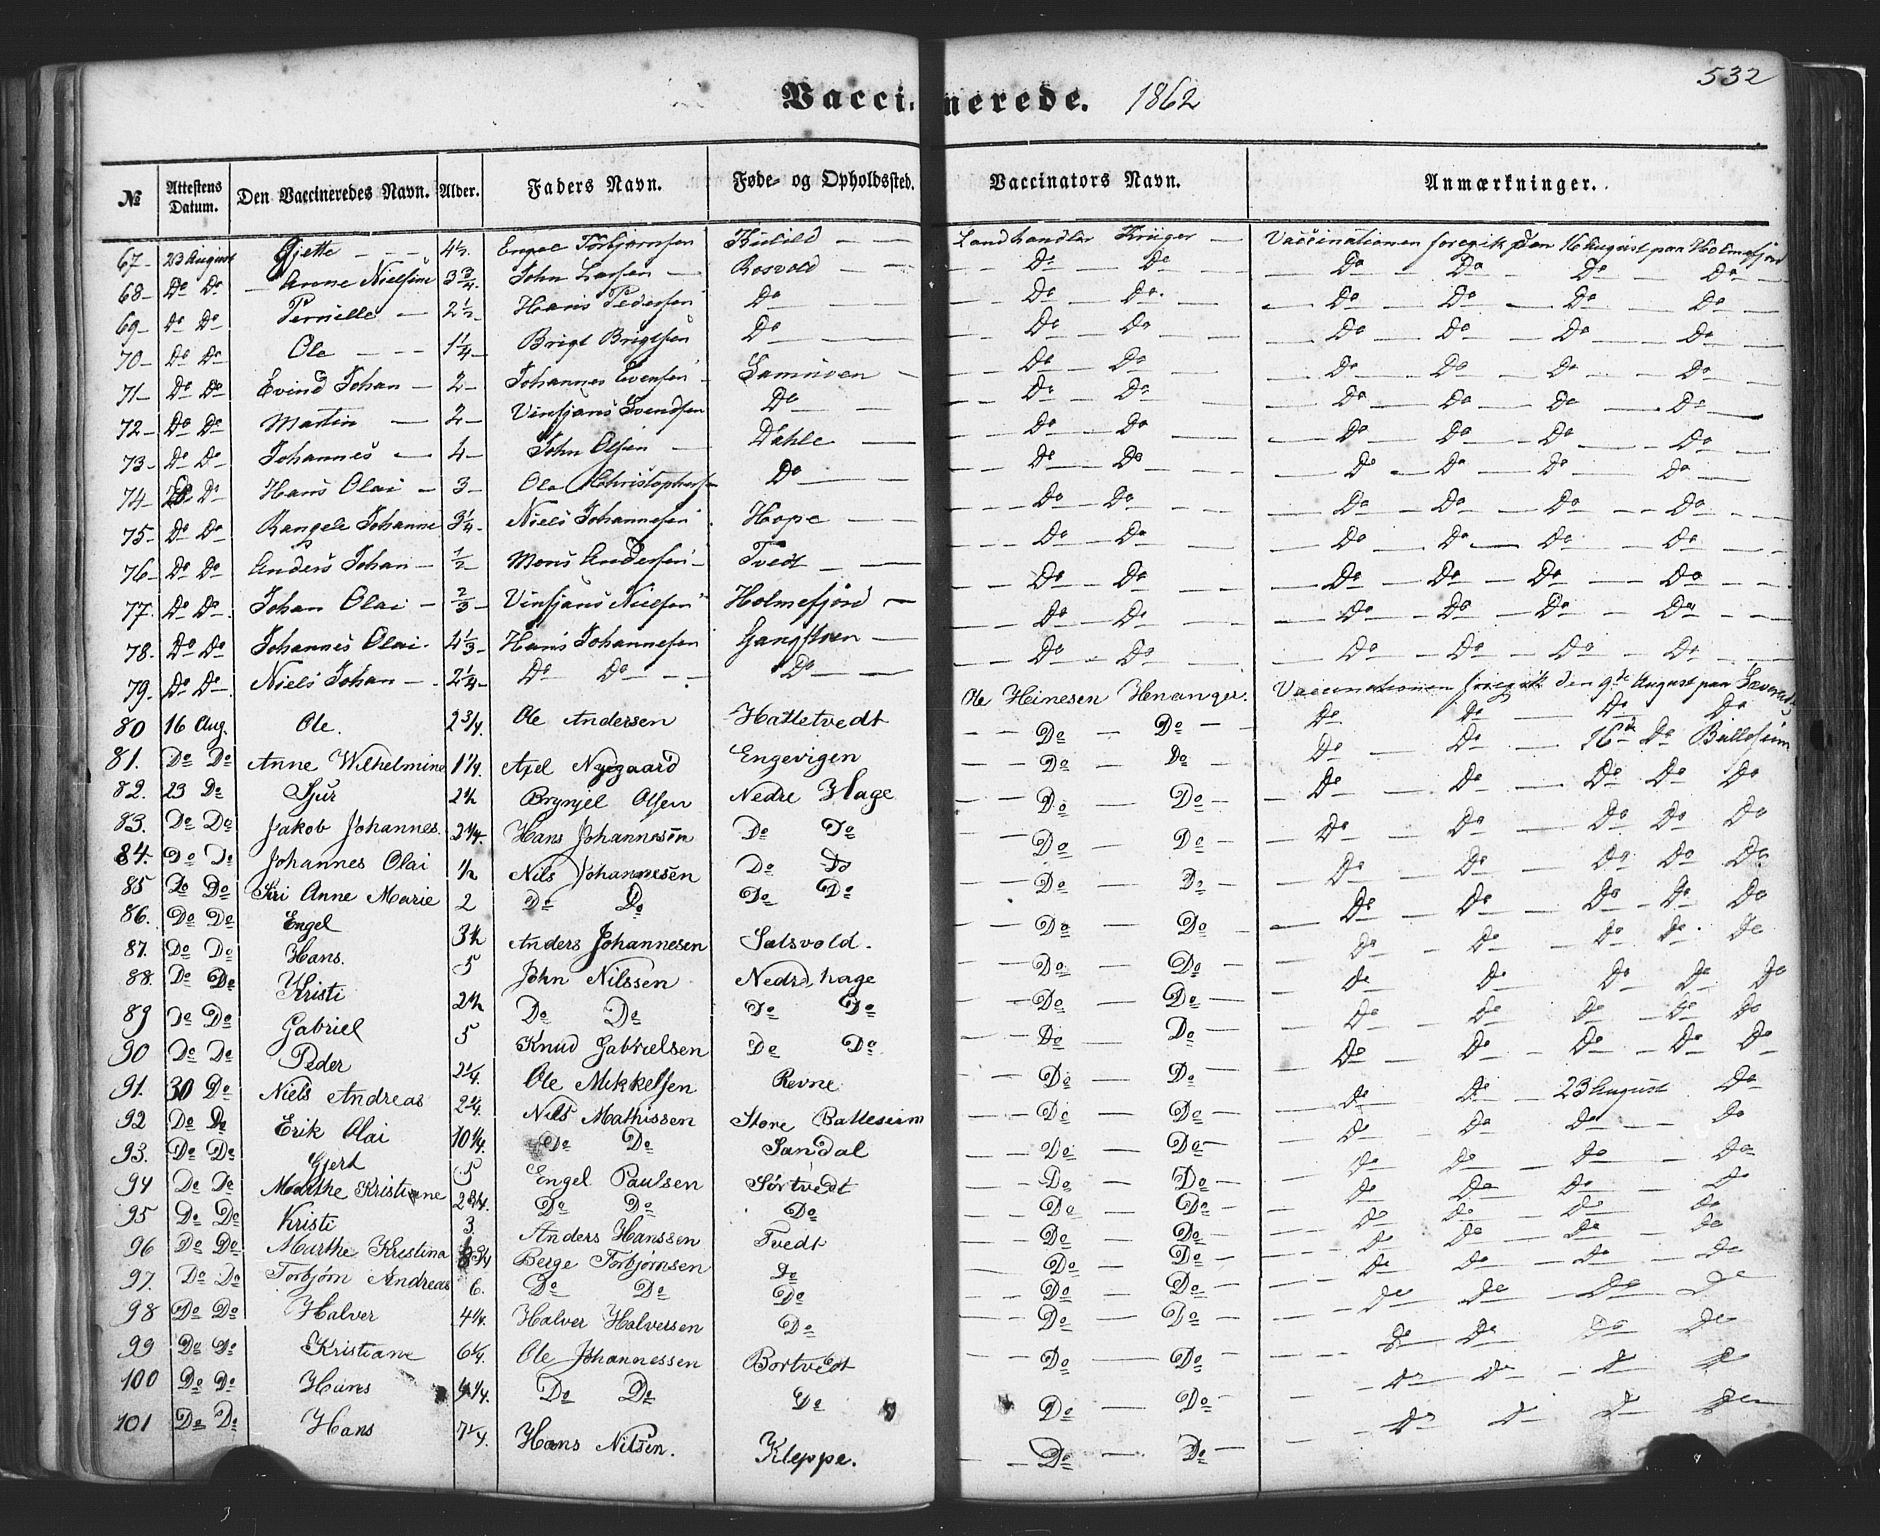 532
Vaccinerede. 1862
№ Attestens Datum. Den Vaccineredes Navn. Alder. Faders Navn. Føde- og Opholdssted. Vaccinators Navn. Anmærkninger.
67 – 23 August Gjette – – – 4½ Engel Torbjørnsen – – Landhandler Krüger – Vaccinationen foregik Den 16 August paa Holmefjord
68 – Do Do – Anne Nielsine 3¾ John Larsen – Rosvold – – – – Do – Do – – Do – Do – Do – Do –
69 – Do Do Pernille – 2½ Hans Pedersen Do – – – – Do – Do – – Do – Do – Do – Do –
70 – Do Do Ole – – – 1¼ Brigt Brigtsen Do – – – – Do – Do – – Do – Do – Do – Do –
71 – Do Do Evind Johan – 2 – Johannes Evensen – – – – Do – Do – – Do – Do – Do – Do –
72 – Do Do Martin – 2 – Vinsjans Svendsen Do – – – – Do – Do – – Do – Do – Do – Do –
73 – Do Do Johannes – 4 – John Olsen – Dahle – – – Do – Do – – Do – Do – Do – Do –
74 – Do Do Hans Olai – 3 – Ole Christophersen Do – – – – Do – Do – – Do – Do – Do – Do –
75 – Do Do Rangele Johanne 3¼ – Niels Johannesen Hope – – – – Do – Do – – Do – Do – Do – Do –
76 – Do Do Anders Johan – ½ – Mons Andersen – Tvedt – – – – Do – Do – – Do – Do – Do – Do –
77. Do Do – Johan Olai – ⅔ – Vinsjans Nielsen Holmefjord – – – Do – Do – – Do – Do – Do – Do –
78. Do Do Johannes Olai – 4⅓ – Hans Johannesen Gangstøen – – – Do – Do – – Do – Do – Do – Do –
79. Do Do – Niels Johan – 2¼ – Do Do – – Do – – – – Do – Do – – Do – Do – Do – Do –
80 16 Aug. Ole. 2¾ Ole Andersen Hattetvedt Ole Heinesen Henanger. Vaccinationen foregik den 9de August paa
81. Do Do Anne Wilhelmine 1¼ Axel Nygaard Engevigen – – Do – Do – Do Do – Do Do
82. 23 Do Sjur 2½ Brynjel Olsen Nedre Hage – – Do – Do – Do – Do – 16de Do
83. Do Do Jakob Johannes. 2¼ Hans Johannesen Do Do – – Do – Do – – Do – Do – Do Do Do
84. Do Do Johannes Olai ½ Nils Johannesen Do Do – – Do – Do – – Do – Do – Do Do Do
85 Do Do Siri Anne Marie 2 Do Do Do Do – – Do – Do – – Do – Do – Do Do Do
86. Do Do Engel 3½ Anders Johannesen Salsvold. – – Do – Do – – Do – Do – Do – Do – Do
87. Do Do Hans. 5 John Nilssen Nedre hage – – Do – Do – – Do – Do – Do – Do – Do
88. Do Do Kristi 2½ Do Do Do Do – – Do – Do – – Do – Do – Do – Do – Do
89 Do Do Gabriel 5 Knud Gabrielsen Do Do – – Do – Do – – Do – Do – Do – Do – Do
90 Do Do Peder 2¼. Ole Mikkelsen Revne – – Do – Do – – Do – Do – Do – Do – Do
91. 30 Do Niels Andreas 2¼. Nils Mathissen Store Balleseim – – Do – Do – – Do – Do – 23 August Do
92 Do Do Erik Olai 10¼. Do Do Sandal – – Do – Do – – Do – Do – Do – Do
93. Do Do Gjert 5 Engel Paulsen Sørtvedt – – Do – Do – – Do – Do – Do – Do
94 Do Do Marthe Kristiane 2¾. Do Do Do – – Do – Do – – Do – Do – Do – Do
95 Do Do Kristi 3 Anders Hanssen Tvedt – – Do – Do – – Do – Do – Do – Do
96 Do Do Marthe Kristina 8¾ Berge Torbjørnsen Do – – Do – Do – – Do – Do – Do – Do
97. Do Do Torbjørn Andreas 6. Do Do Do – – Do – Do – – Do – Do – Do – Do
98 Do Do Halver 4¼. Halver Halversen Do – – Do – Do – – Do – Do – Do – Do
99 Do Do Kristiane 6¼. Ole Johannessen Bortvedt – – Do – Do – – Do – Do – Do – Do
100 Do Do Hans Do Do Do – – Do – Do – – Do – Do – Do – Do
101 Do Do Hans 7¼. Hans Nilsen. Kleppe. – – Do – Do – – Do – Do – Do – Do